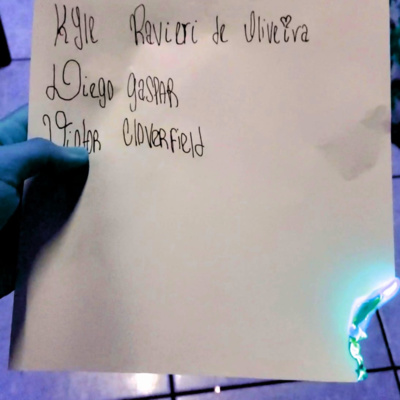 Kyle Ravieri de Oliveira
Diego GASPAR
Victor CloverField